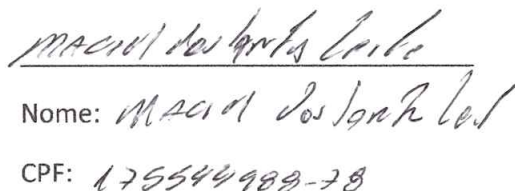 Maciel dos Santos Leite
Nome: Maciel dos Santos Lei
CPF: 175544988-78